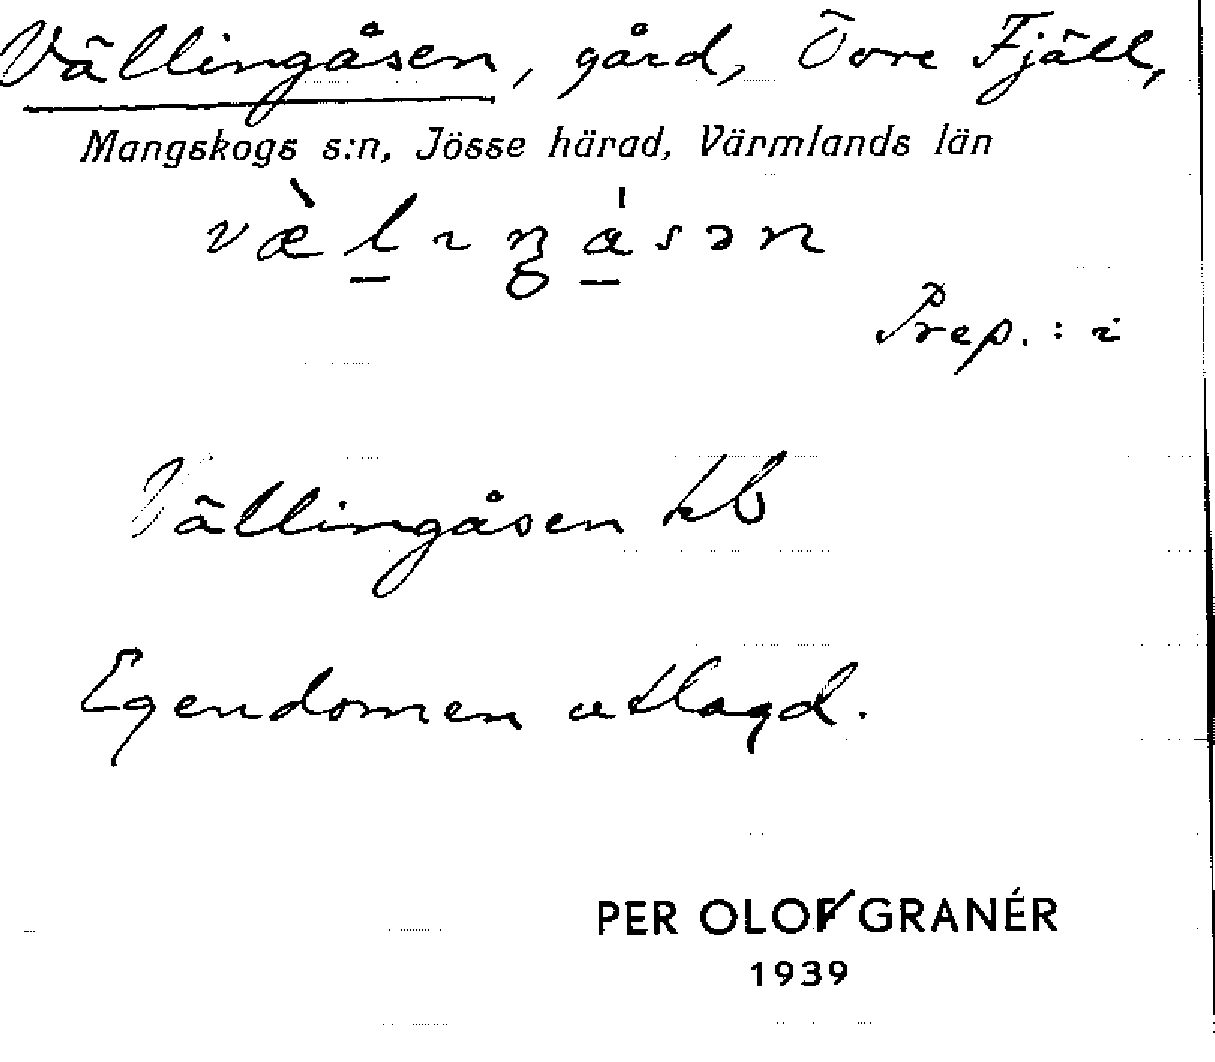 Vällingåsen, gård, Övre Fjäll,
Mangskogs s:n, Jösse härad, Värmlands län
Prep. : i
Vällingåsen kb
Egendomen utlagd.
PER OLOF GRANÉR
1939